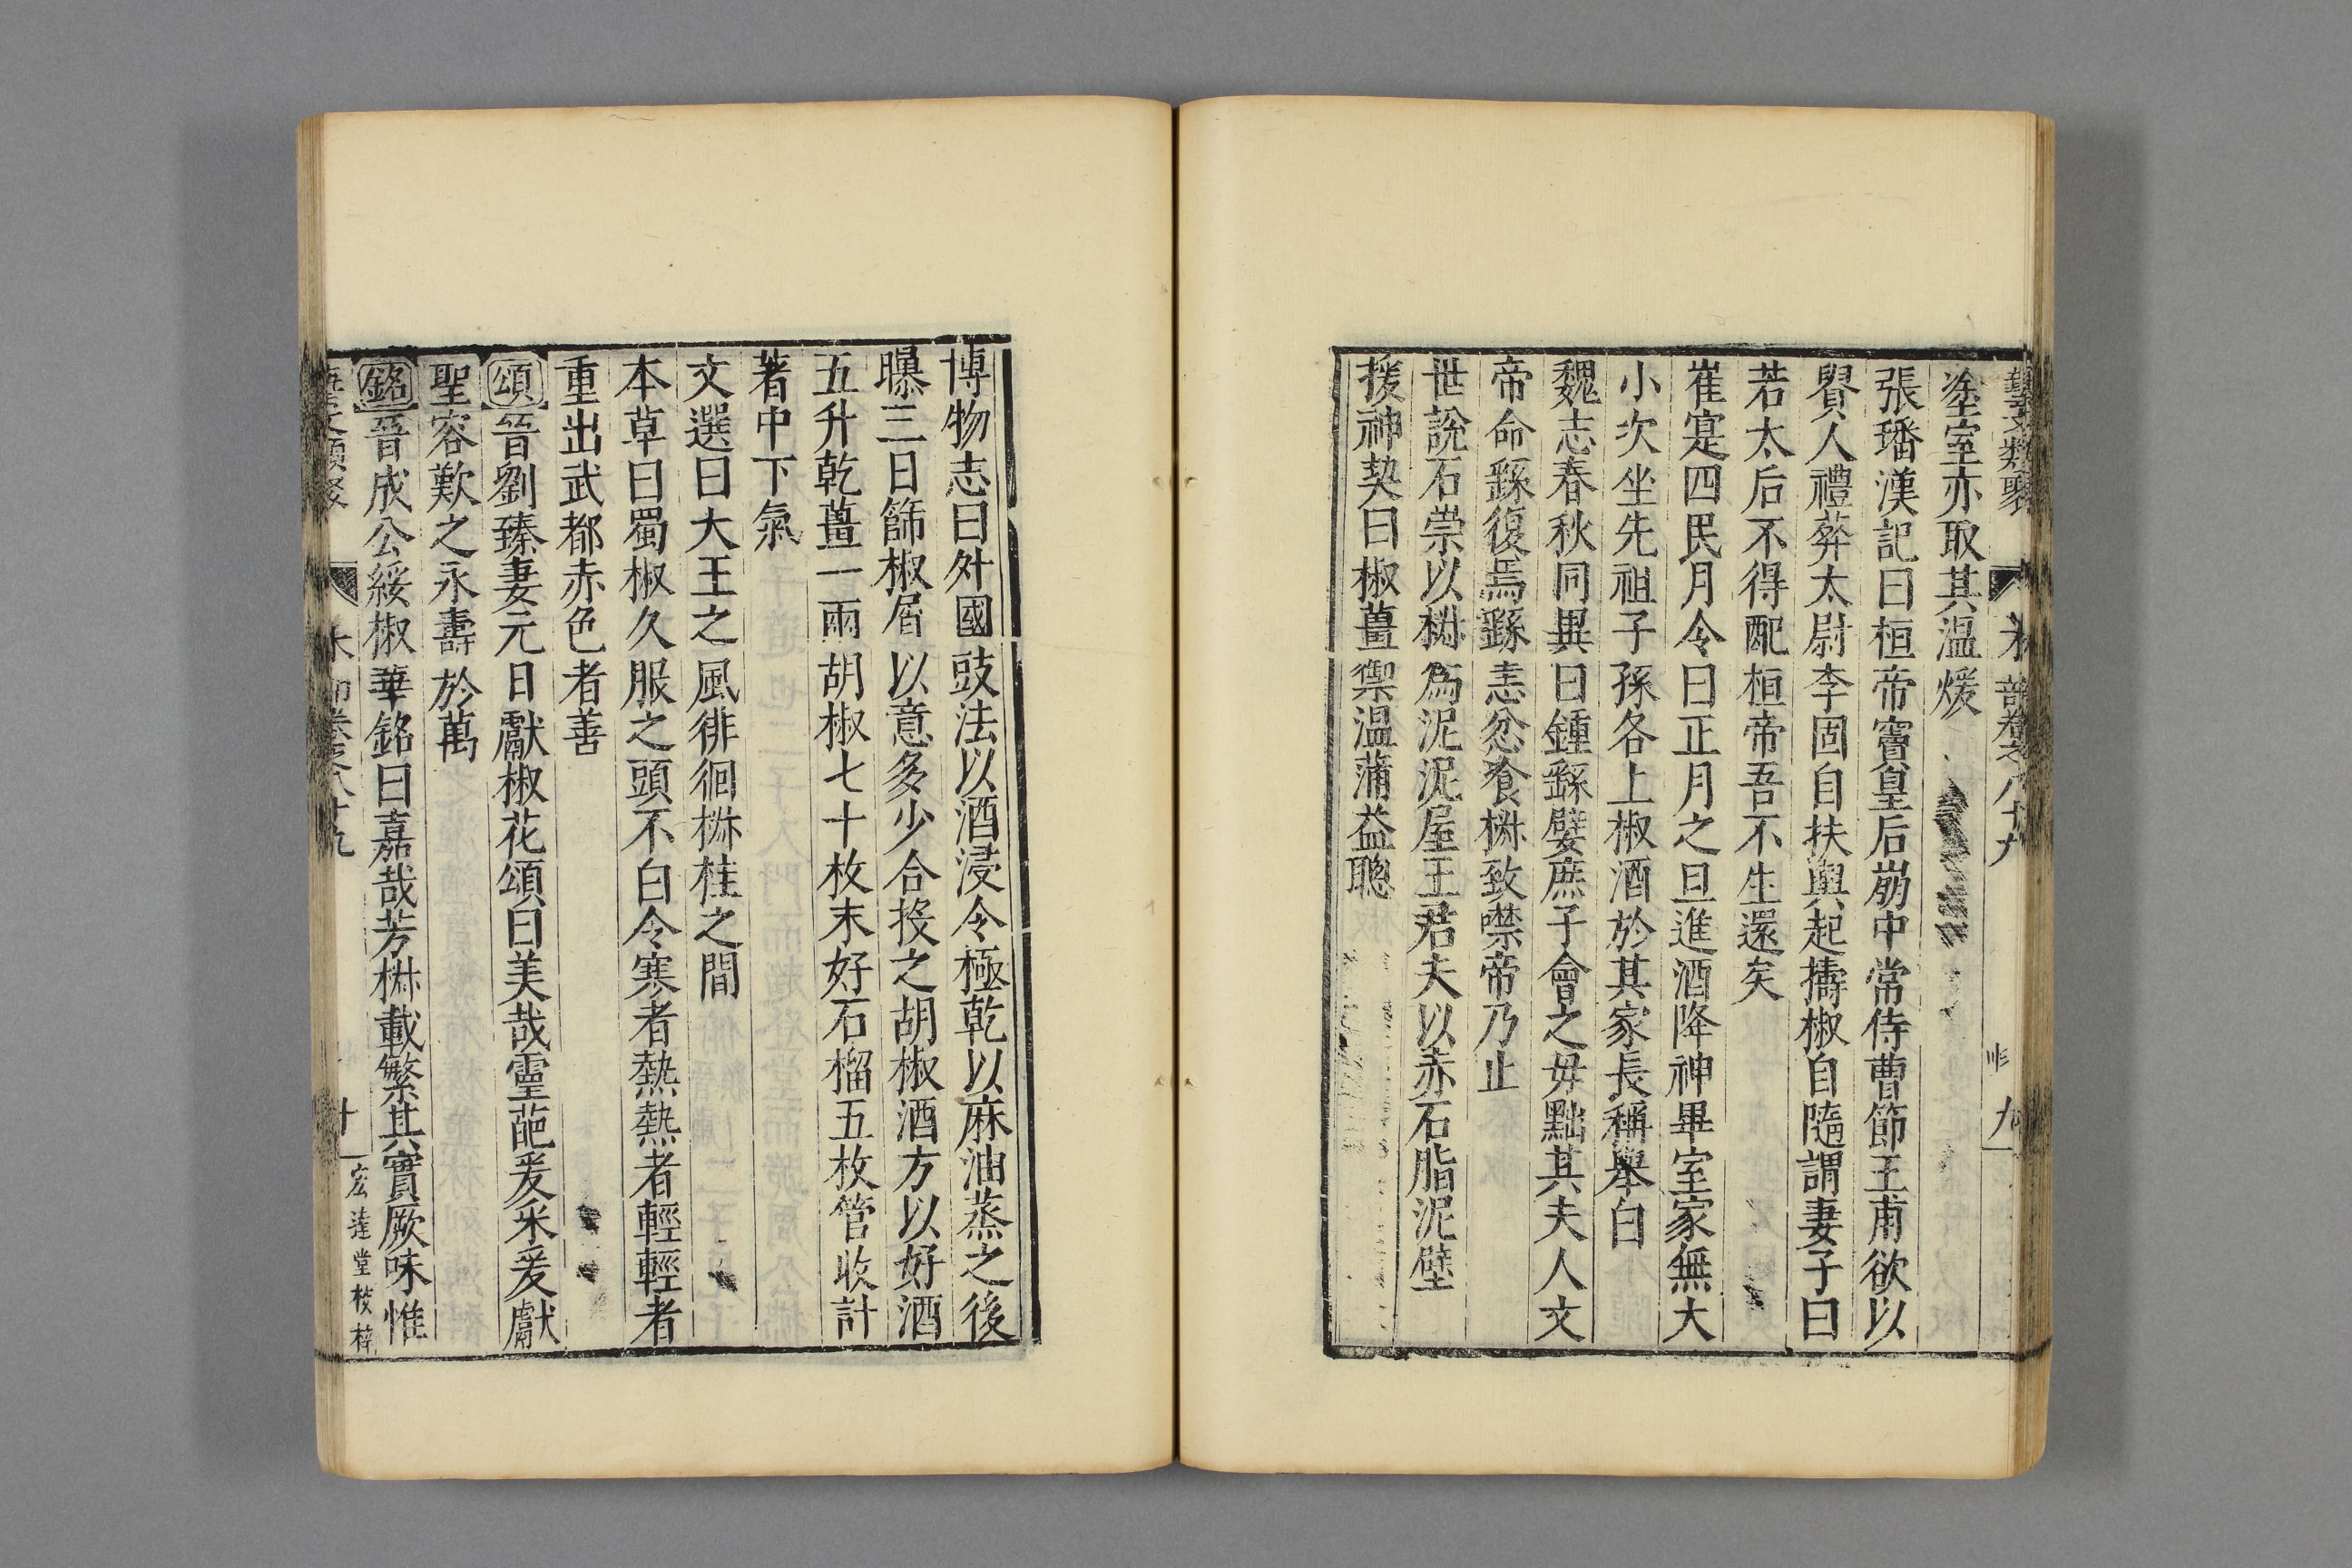 藝文類聚 木部卷之八十九 九
塗室亦取其温煖
張璠漢記曰桓帝竇皇后崩中常侍曹節王甫欲以
貴人禮葬太尉李固自扶輿起擣椒自隨謂妻子曰
若太后不得配桓帝吾不生還矣
崔寔四民月令曰正月之旦進酒降神畢室家無大
小次坐先祖子孫各上椒酒於其家長稱舉白
魏志春秋同異曰鍾繇嬖庶子會之毋黜其夫人文
帝命繇復焉繇恚忿飡椒致噤帝乃止
世說石崇以椒爲泥泥屋王君夫以赤石脂泥壁
援神契曰椒薑禦温蒲益聰
博物志曰外國豉法以酒浸令極乾以麻油蒸之後
曝三日篩椒屑以意多少合投之胡椒酒方以好酒
五升乾薑一兩胡椒七十枚末好石榴五枚管收計
著中下氣
文選曰大王之風徘徊椒桂之間
本草曰蜀椒久服之頭不白令寒者熱熱者輕輕者
重出武都赤色者善
頌晉劉臻妻元日獻椒花頌曰美哉靈葩爰采爰獻
聖容歎之永壽於萬
銘晉成公綏椒華銘曰嘉哉芳椒載繁其實厥味惟
藝文類聚 木部卷之八十九 十 宏達堂校梓